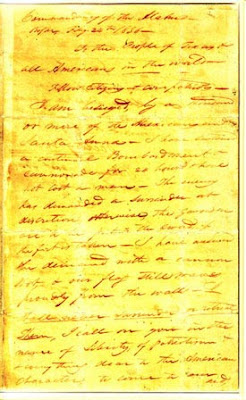 Commandancy of the Alamo
Bejar, Feby. 24th 1836
To the People of Texas &
all Americans in the world
Fellow citizens & compatriots
I am besieged, by a
or more of the Mexicans under
Santa Anna - I have
a continual Bombardment &
cannonade for 24 hours & have
not lost a man - The enemy
has demanded a surrender at
discretion, otherwise, the garrison
are to be put to the sword, if
the fort is taken - I have answered
the demand with a cannon
shot, & our flag still waves
proudly from the walls - I
shall never surrender or retreat
Then, I call on you in the
name of Liberty, of patriotism &
everything dear to the American
character, to come to our aid,